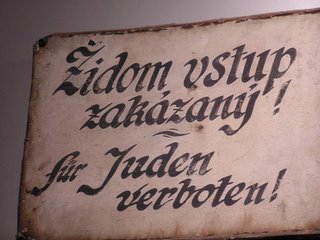 Židom vstup
zakázaný!
für Juden
verboten!